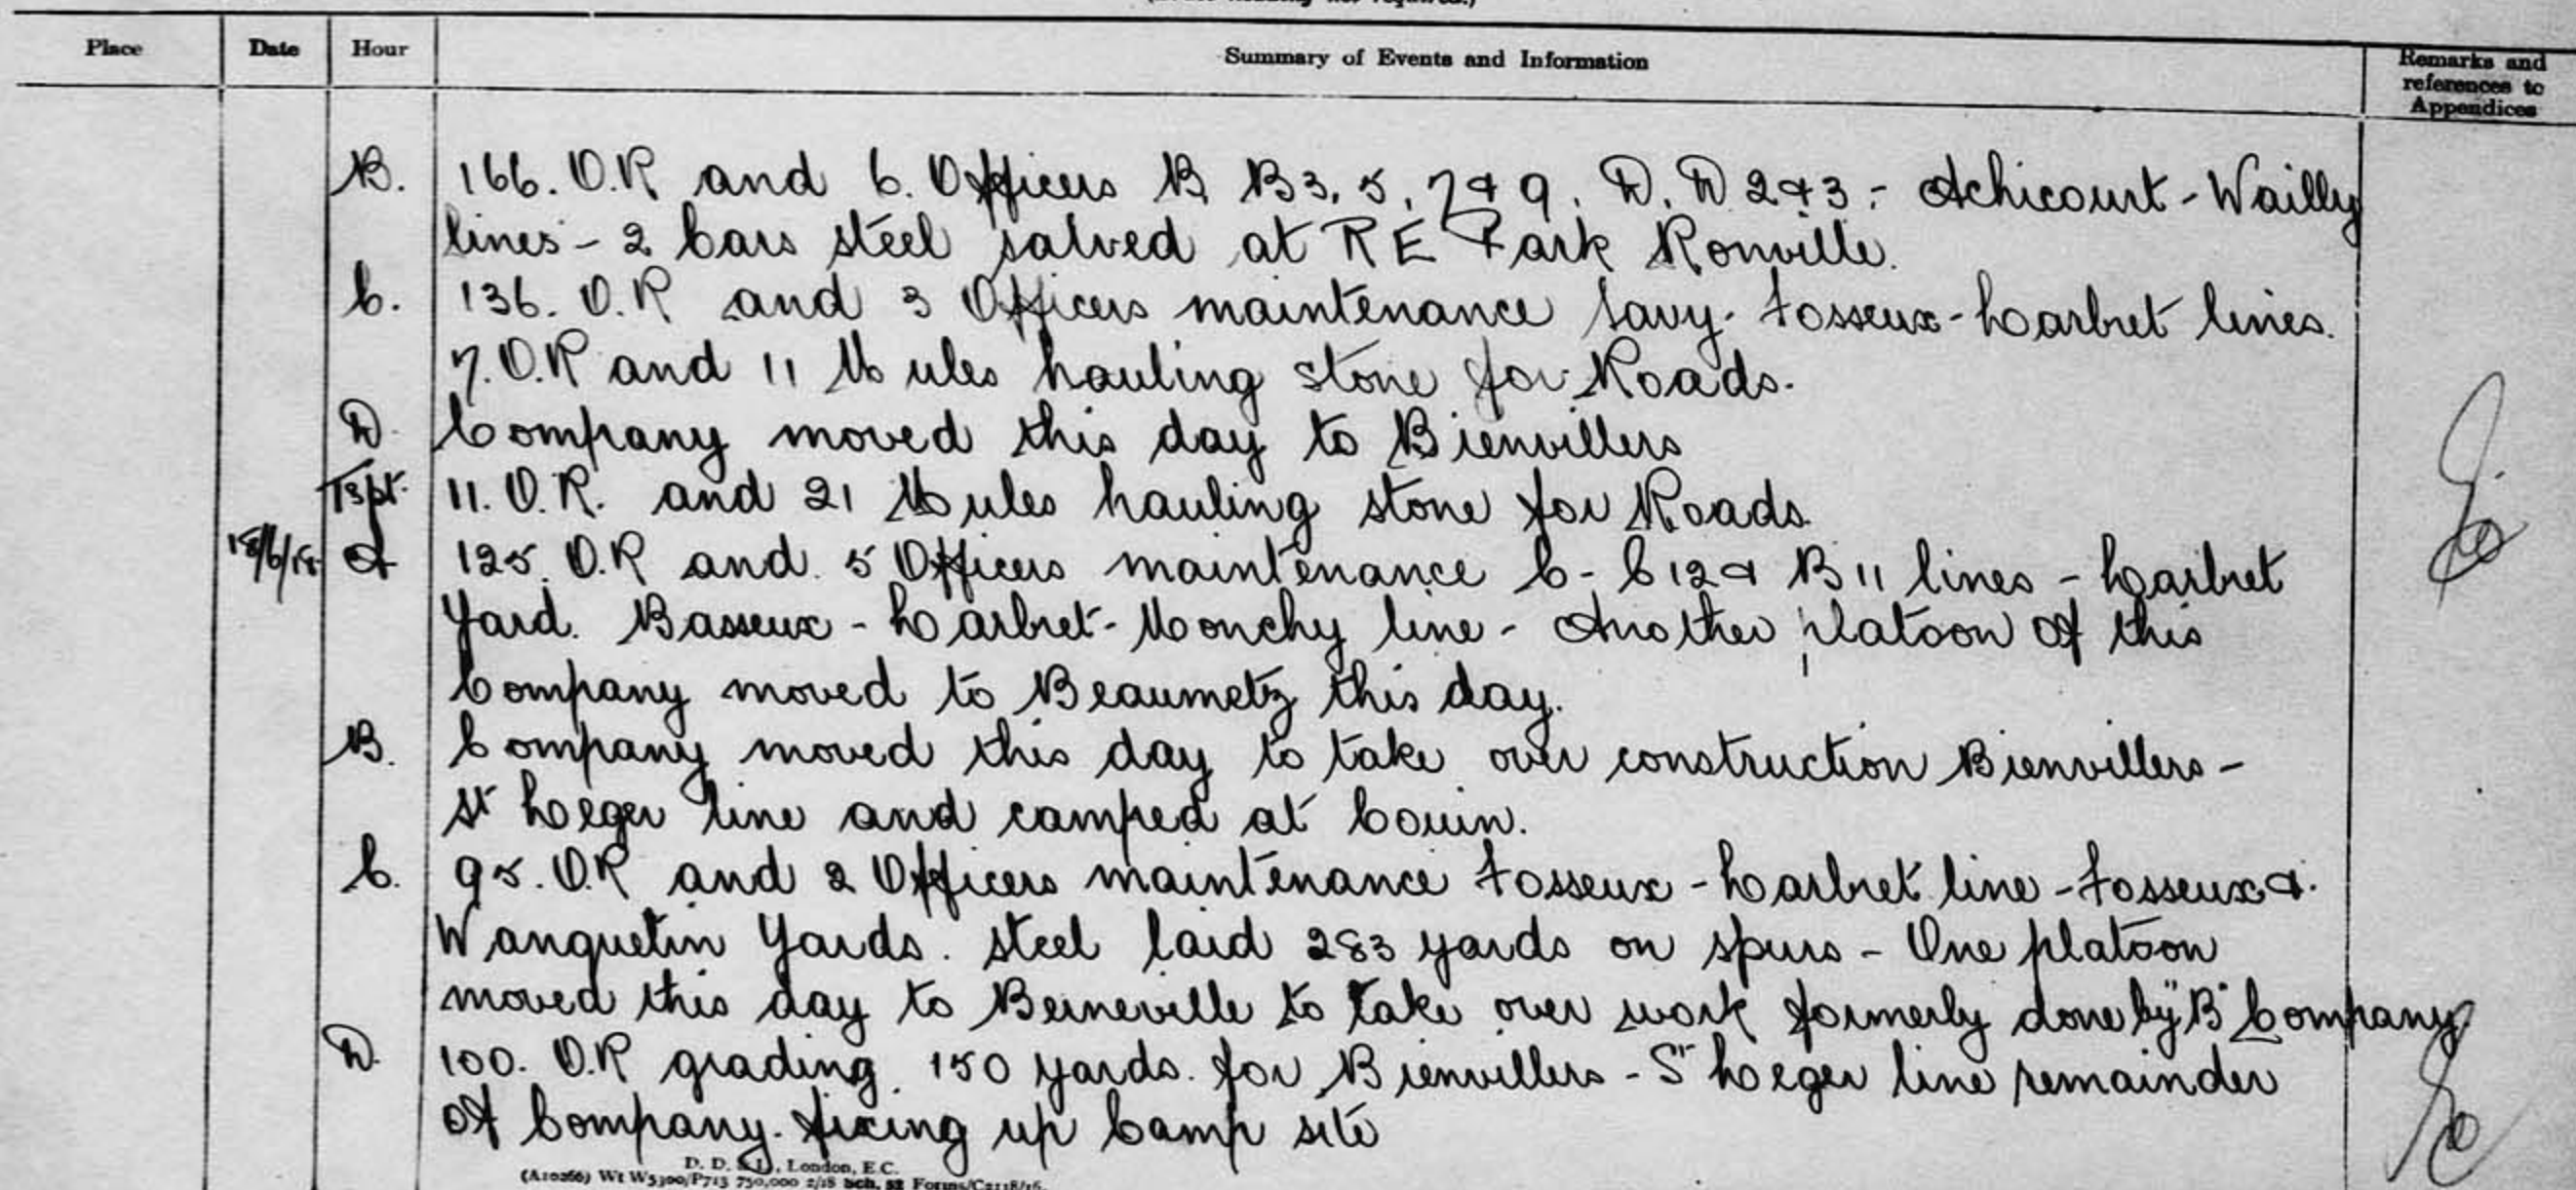 Place Date Hour Summary of Events and Information Remarks and references to Appendices
B. 166. O.R and 6. Officers B B3. 5. 7 & 9. D. D 2 & 3 - Achicourt - Wailly
lines - 2 Cars steel salved at R E Park Ronville.
C. 136. O.R and 3 Officers maintenance Savy - Fosseux - Larbret lines.
7. O.R and 11 Mules hauling stone for Roads.
D. Company moved this day to Bienvillers
Tspt. 11. O.R. and 21 Mules hauling stone for Roads
18/6/18 A 125. O.R and 5 Officers maintenance C - C 12 & B 11 lines - Larbret
Yard. Basseux - Larbret - Monchy line - Another platoon of this
Company moved to Beaumetz this day.
B. Company moved this day to take over construction Bienvillers -
St Leger line and camped at Couin.
C. 95. O.R and 2 Officers maintenance Fosseux - Larbret line - Fosseux &
Wanquetin Yards. Steel laid 283 yards on spurs - One platoon
moved this day to Berneville to take over work formerly done by "B" Company
D. 100. O.R grading 150 yards. for Bienvillers - St Leger line remainder
of Company. fixing up Camp site
D. D. & L., London, E.C.
(A10266) Wt W5300/P713 750,000 2/18 Sch. 52 Forms/C2118/16.